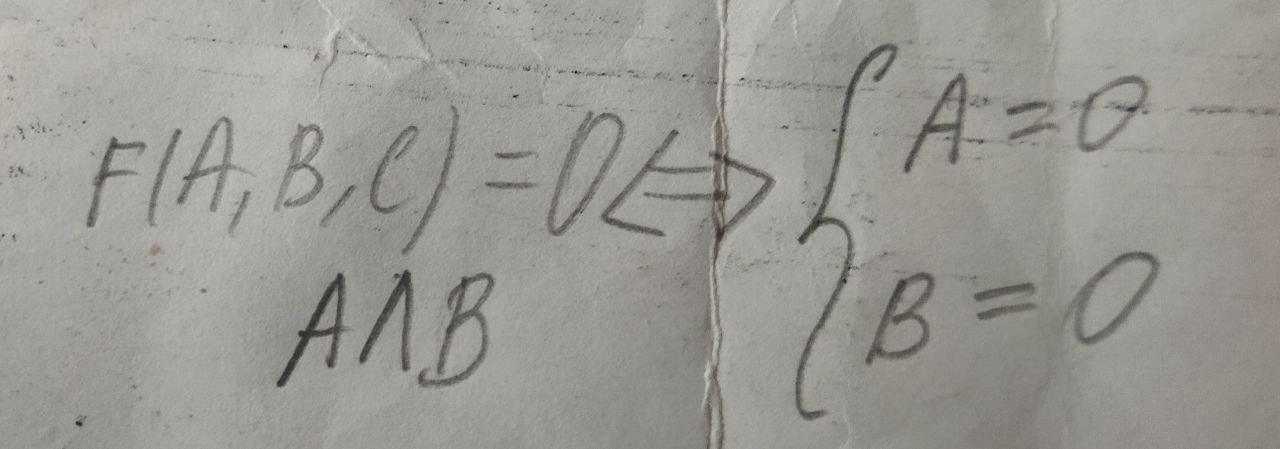 F(A, B, C) = 0 <=> { A = 0
B = 0
A ∧ B